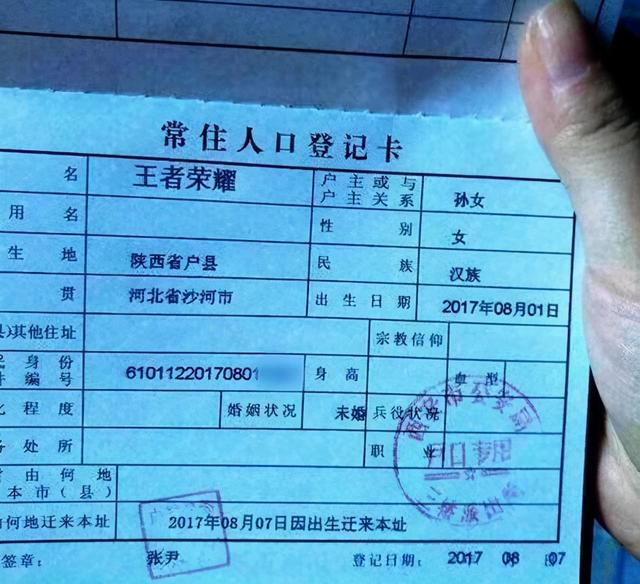 常住人口登记卡
名 王者荣耀 户主或与户主关系 孙女
用名 性别 女
生地 陕西省户县 民族 汉族
贯 河北省沙河市 出生日期 2017年08月01日
)其他住址 宗教信仰
身份
编号 61011220170801 身高 血型
程度 婚姻状况 未婚 兵役状况
处所 职业
由何地
本市(县)
何地迁来本址 2017年08月07日因出生迁来本址
签章: 张尹 登记日期: 2017 08 07
户口专用